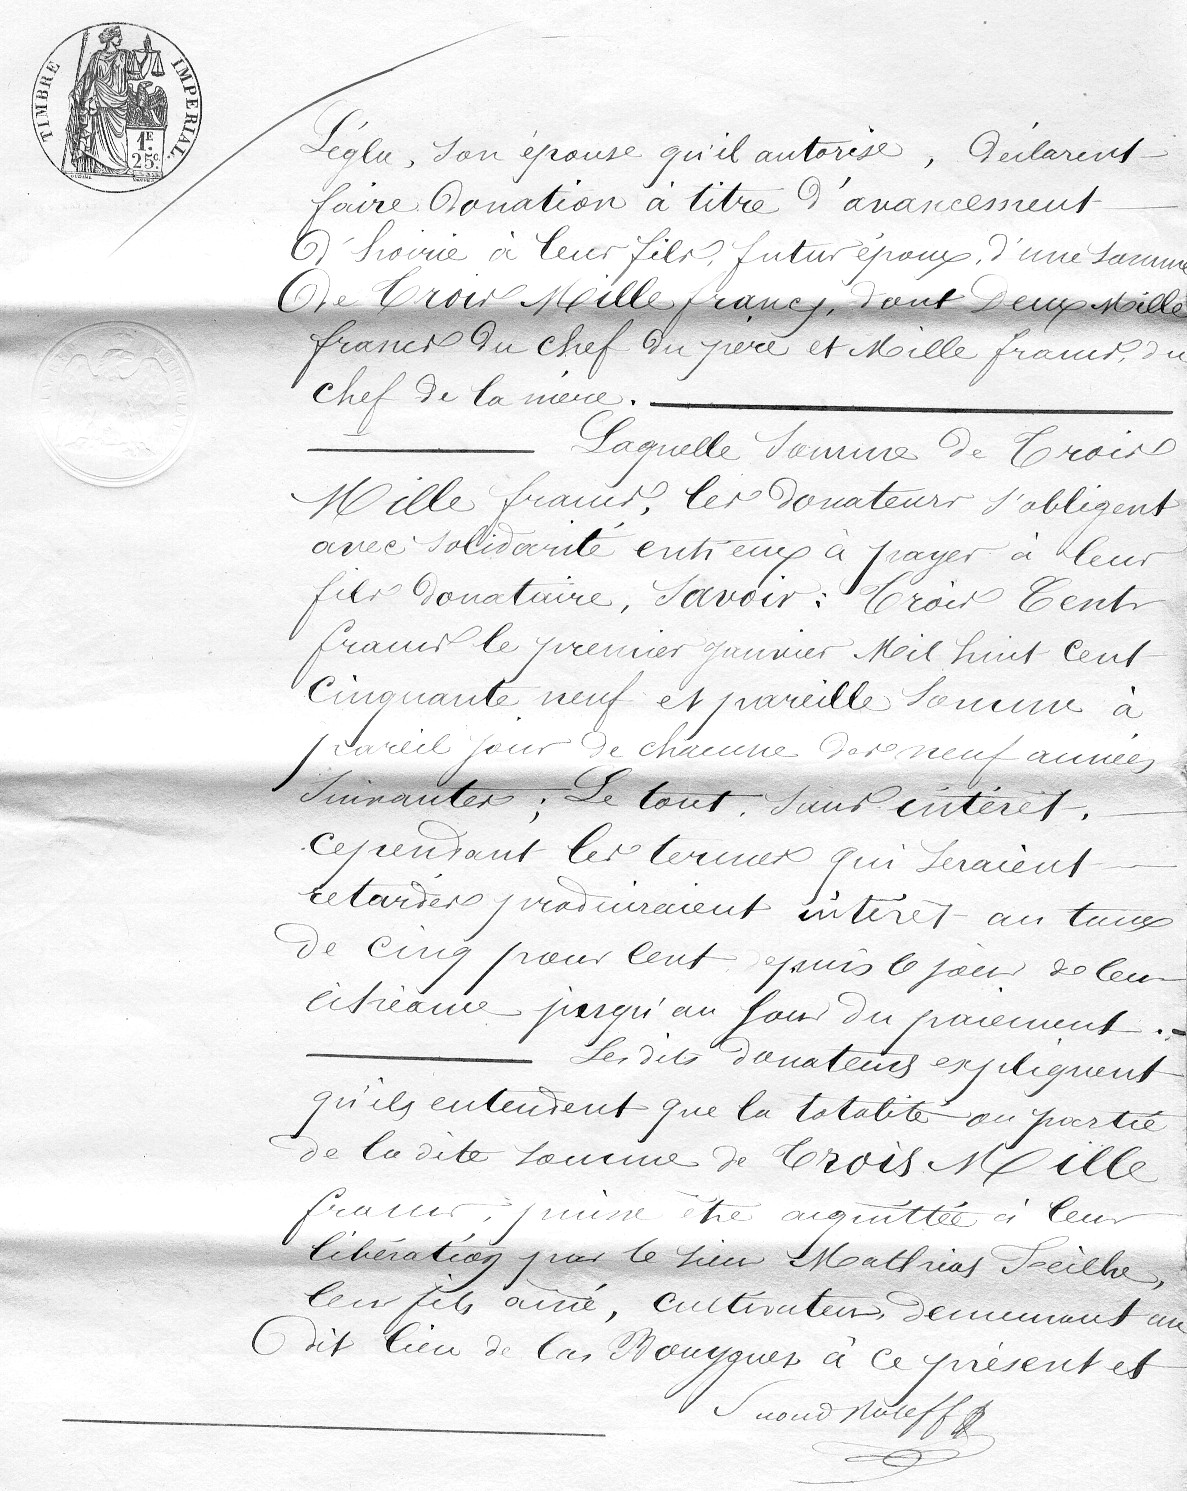 TIMBRE IMPERIAL.
1F.
25c.
Léglu, son épouse qu'il autorise, déclarent
faire donation à titre d'avancement
d'hoirie à leur fils, futur époux, d'une somme
de Trois Mille francs, dont Deux Mille
francs du chef du père et Mille francs, du
chef de la mère.
Laquelle somme de Trois
Mille francs, les donateurs s'obligent
avec solidarité entr'eux à payer à leur
fils donataire, Savoir : Trois Cents
francs le premier janvier Mil huit cent
cinquante neuf et pareille somme à
pareil jour de chacune des neuf années
suivantes ; Le tout, sans intérêt,
cependant les termes qui seraient
retardés produiraient intérêt au taux
de cinq pour cent depuis le jour de leur
échéance jusqu'au jour du paiement.
Lesdits donateurs expliquent
qu'ils entendent que la totalité ou partie
de ladite somme de Trois Mille
francs, puisse être acquittée à leur
libération par le sieur Mathias Seilhe,
leur fils ainé, cultivateur, demeurant au
dit lieu de las Bouygues à ce présent et